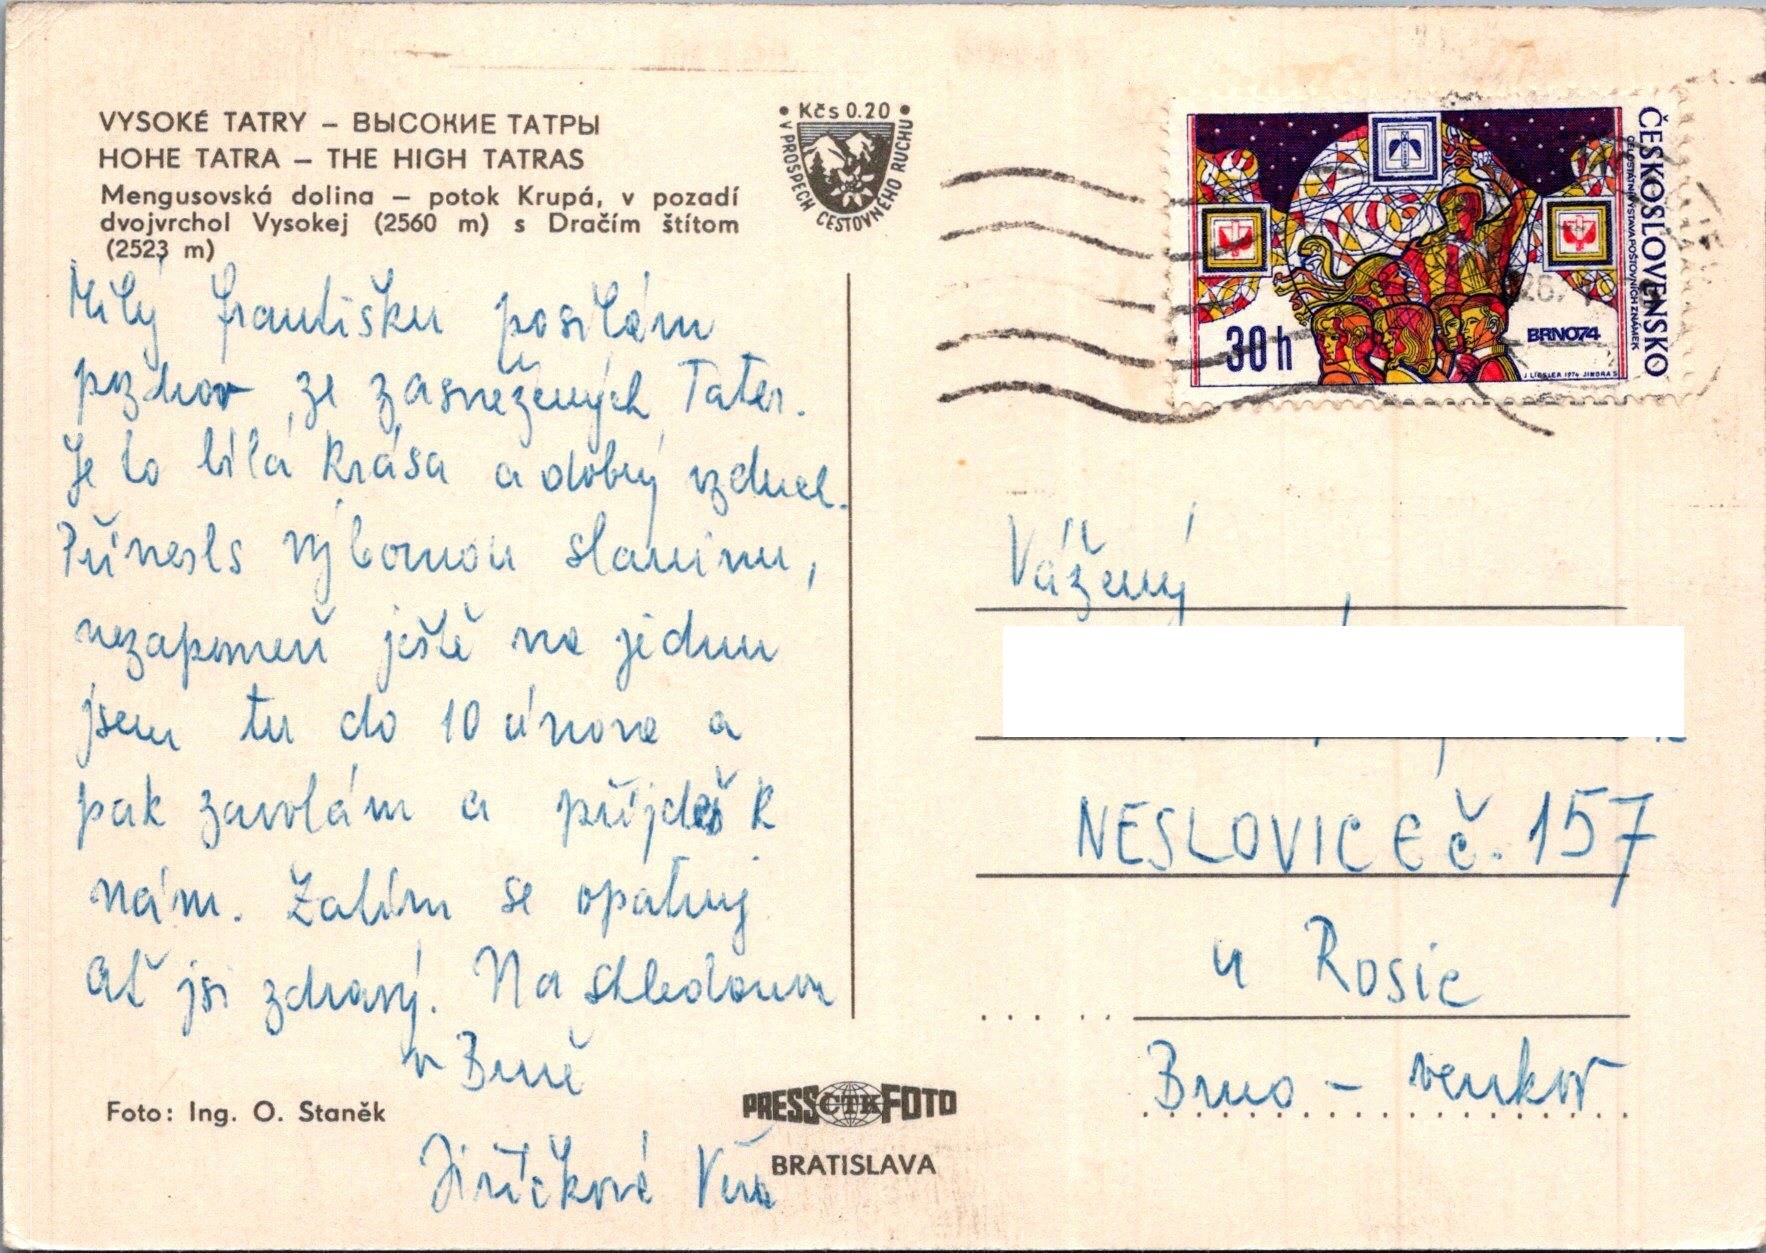 VYSOKÉ TATRY – ВЫСОКИЕ ТАТРЫ
HOHE TATRA – THE HIGH TATRAS
Mengusovská dolina – potok Krupá, v pozadí
dvojvrchol Vysokej (2560 m) s Dračím štítom
(2523 m)
• Kčs 0.20 •
V PROSPECH CESTOVNÉHO RUCHU
ČESKOSLOVENSKO
CELOSTÁTNÍ VÝSTAVA POŠTOVNÍCH ZNÁMEK
BRNO74
30 h
J. LIESLER 1974 JINDRA S
Milý Františku posílám
pozdrav ze zasněžených Tater.
Je to bílá krása a dobrý vzduch.
Přinesls výbornou slaninu,
nezapomeň ještě na jednu
jsem tu do 10 února a
pak zavolám a přijdeš k
nám. Zatím se opatruj
Ať jsi zdravý. Na shledanou
v Brně
Jiříčková Věra
Vážený
NESLOVICE č. 157
u Rosic
Brno – venkov
Foto: Ing. O. Staněk
PRESS ČTK FOTO
BRATISLAVA